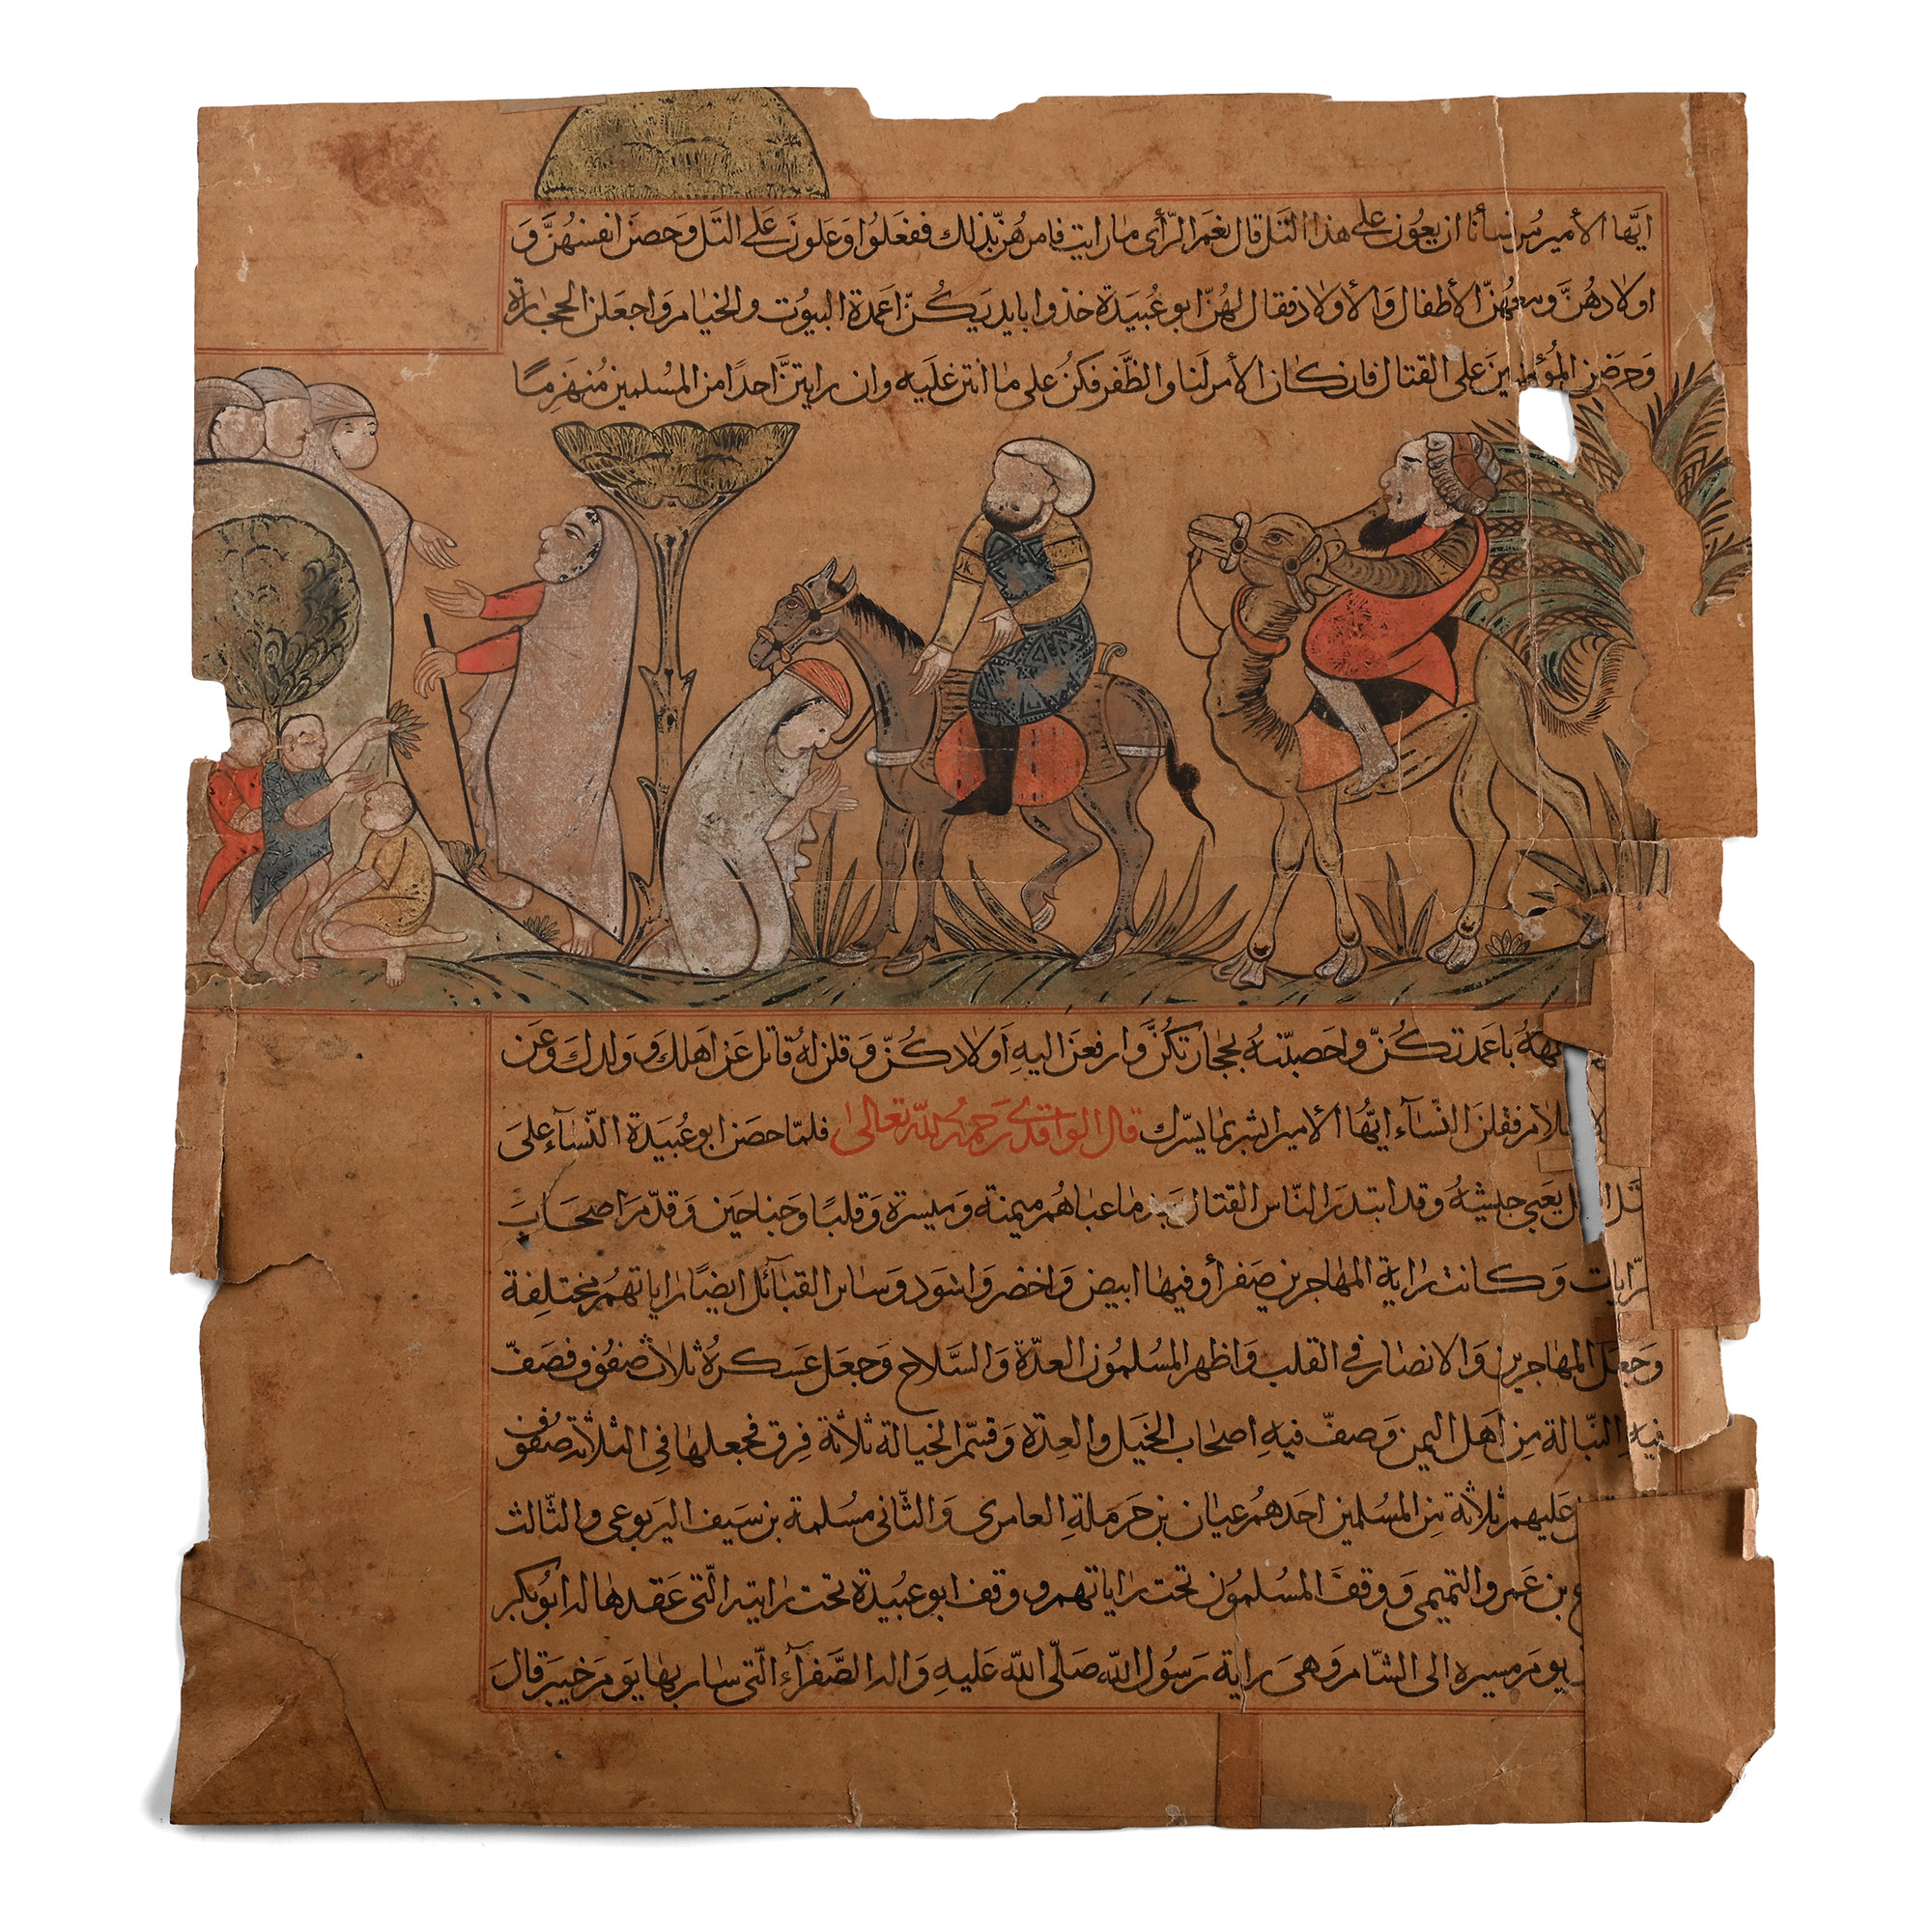 ايّها الأمير مُر نسأنا ان يعلون على هذا التل قال نعم الرّأى ما رايت فامرهُنّ بذلك ففعلوا وَعَلونَ عَلى التل وَحصنّ انفسهُنَّ وَ
اولادهُنَّ ومعهُنّ الأطفال وَالأولاد فقال لهُنّ ابو عُبيَدة خذوا بايديَكُنّ اعمدة البيُوت والخيام وَاجعَلن الحجارة
وَحرضن المؤمنينَ على القتال فان كان الأمر لنا والظّفر فكنُ على ما انتن عَليه وان رايتنَّ احدًا من المسُلمين مُنهزمًا
باعمدتكُنّ واحصبنّه بحجارتكُنَّ وارفعن اليهِ اَولادكُنّ وَقلن لهُ قاتل عَن اهلك وَولدك وَعَن
فقلن النّسآء ايّهُا الأمير ابشر بما يسّرك قال الواقدى رَحمهُ اللّه تعَالى فلمّا حصن ابو عُبيَدة النّسَاء علىَ
يعَبى جيشهُ وقد ابتدرَ النّاس القتال بَعد ما عبَاهُم ميمنة وَميسرة وَقلبًا وجنَاحَين وَقدّم اصحَاب
رّايات وَكانت راية المهاجرين صَفرأ وفيها ابيض وَاخضر وَاسَود وَسائر القبَائل ايضًا راياتهمُ مختلفة
وَجعَل المهاجرين وَالانصار فى القلب وَاظهر المسُلموُن العدّة وَالسّلاح وَجعَل عَسكرهُ ثلاث صفوُف فصَفّ
فيهِ النبّالة مِن اَهل اليمن وَصفّ فيهِ اصحاب الخيَل والعدّة وَقسّم الخيالة ثلاثة فِرق فجعلها فِى الثلاثة صفوُف
وعليهم ثلاثة مِن المسُلمين احدهمُ عيان بن حَرملةِ العامرى وَالثّانى مسُلمة بن سَيف اليَربوعى والثّالث
بن عَمرو التميمى وَوقفَ المسُلموُن تحت راياتهم ووقف ابو عبُيدة تحت رايته الّتى عَقدها له ابوُ بكر
يوم مسيره الى الشّام وَهىَ راية رَسوُل اللّه صَلّى اللّه عَليهِ وَاله الصّفرآء الّتى سار بها يوم خيبرَ قالَ